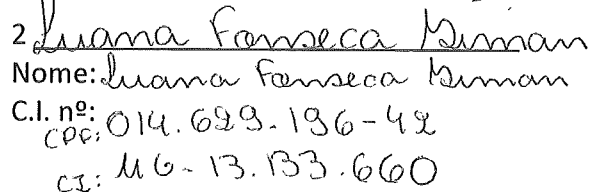 2 Luana Fonseca Giman
Nome: Luana Fonseca Giman
C.I. nº:
CPF: 014.629.196-42
CI: MG-13.133.660